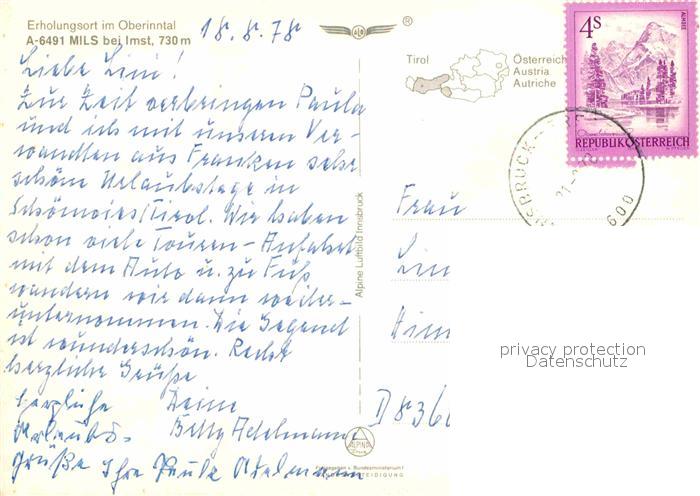 Erholungsort im Oberinntal
A-6491 MILS bei Imst, 730 m
18.8.78
Liebe Lini!
Zur Zeit verbringen Paula
und ich mit unseren Ver-
wandten aus Franken sehr
schöne Urlaubstage in
Tirol. Wir haben
schon viele Touren - Anfahrt
mit dem Auto u. zu Fuß
wandern wir dann weiter -
unternommen. Die Gegend
ist wunderschön. Recht
herzliche Grüße
Deine
Betty Adelmann
Herzliche
Urlaubs-
grüße Ihre Paula Adelmann
Alpine Luftbild Innsbruck
®
Tirol
Österreich
Austria
Autriche
4S
ALMSEE
REPUBLIK ÖSTERREICH
Frau
Lin
D 836
privacy protection
Datenschutz
ALPINA